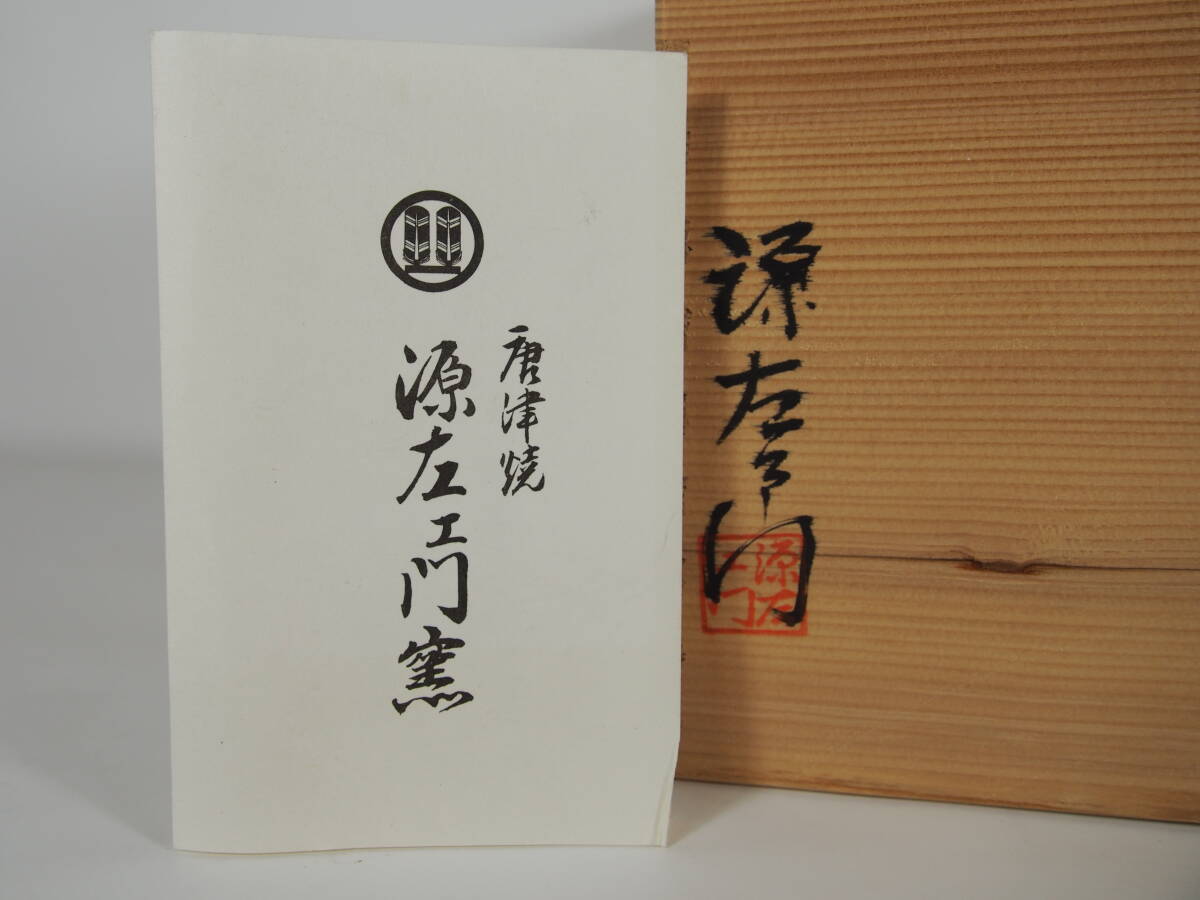 唐津焼
源左ェ門窯
源左ヱ門
源左
ヱ門